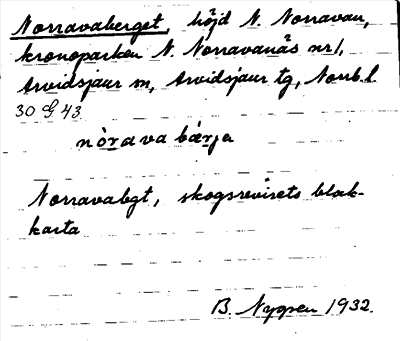 Norravaberget, höjd N. Norravan,
kronoparken N. Norravanäs nr 1,
Arvidsjaur sn, Arvidsjaur tg, Norrb. l.
30 G 43
nòrava bærja
Norravabgt, skogsrevirets blak-
karta
B. Nygren 1932.